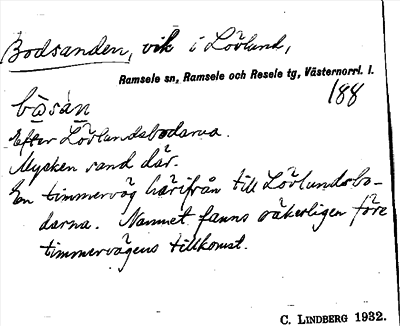 Bodsanden, vik i Lövlund,
Ramsele sn, Ramsele och Resele tg, Västernorrl. l.
188
bosan
Efter Lövlundsbodarna.
Mycken sand där.
En timmerväg härifrån till Lövlundsbo-
darna. Namnet fanns säkerligen före
timmervägens tillkomst.
C. LINDBERG 1932.